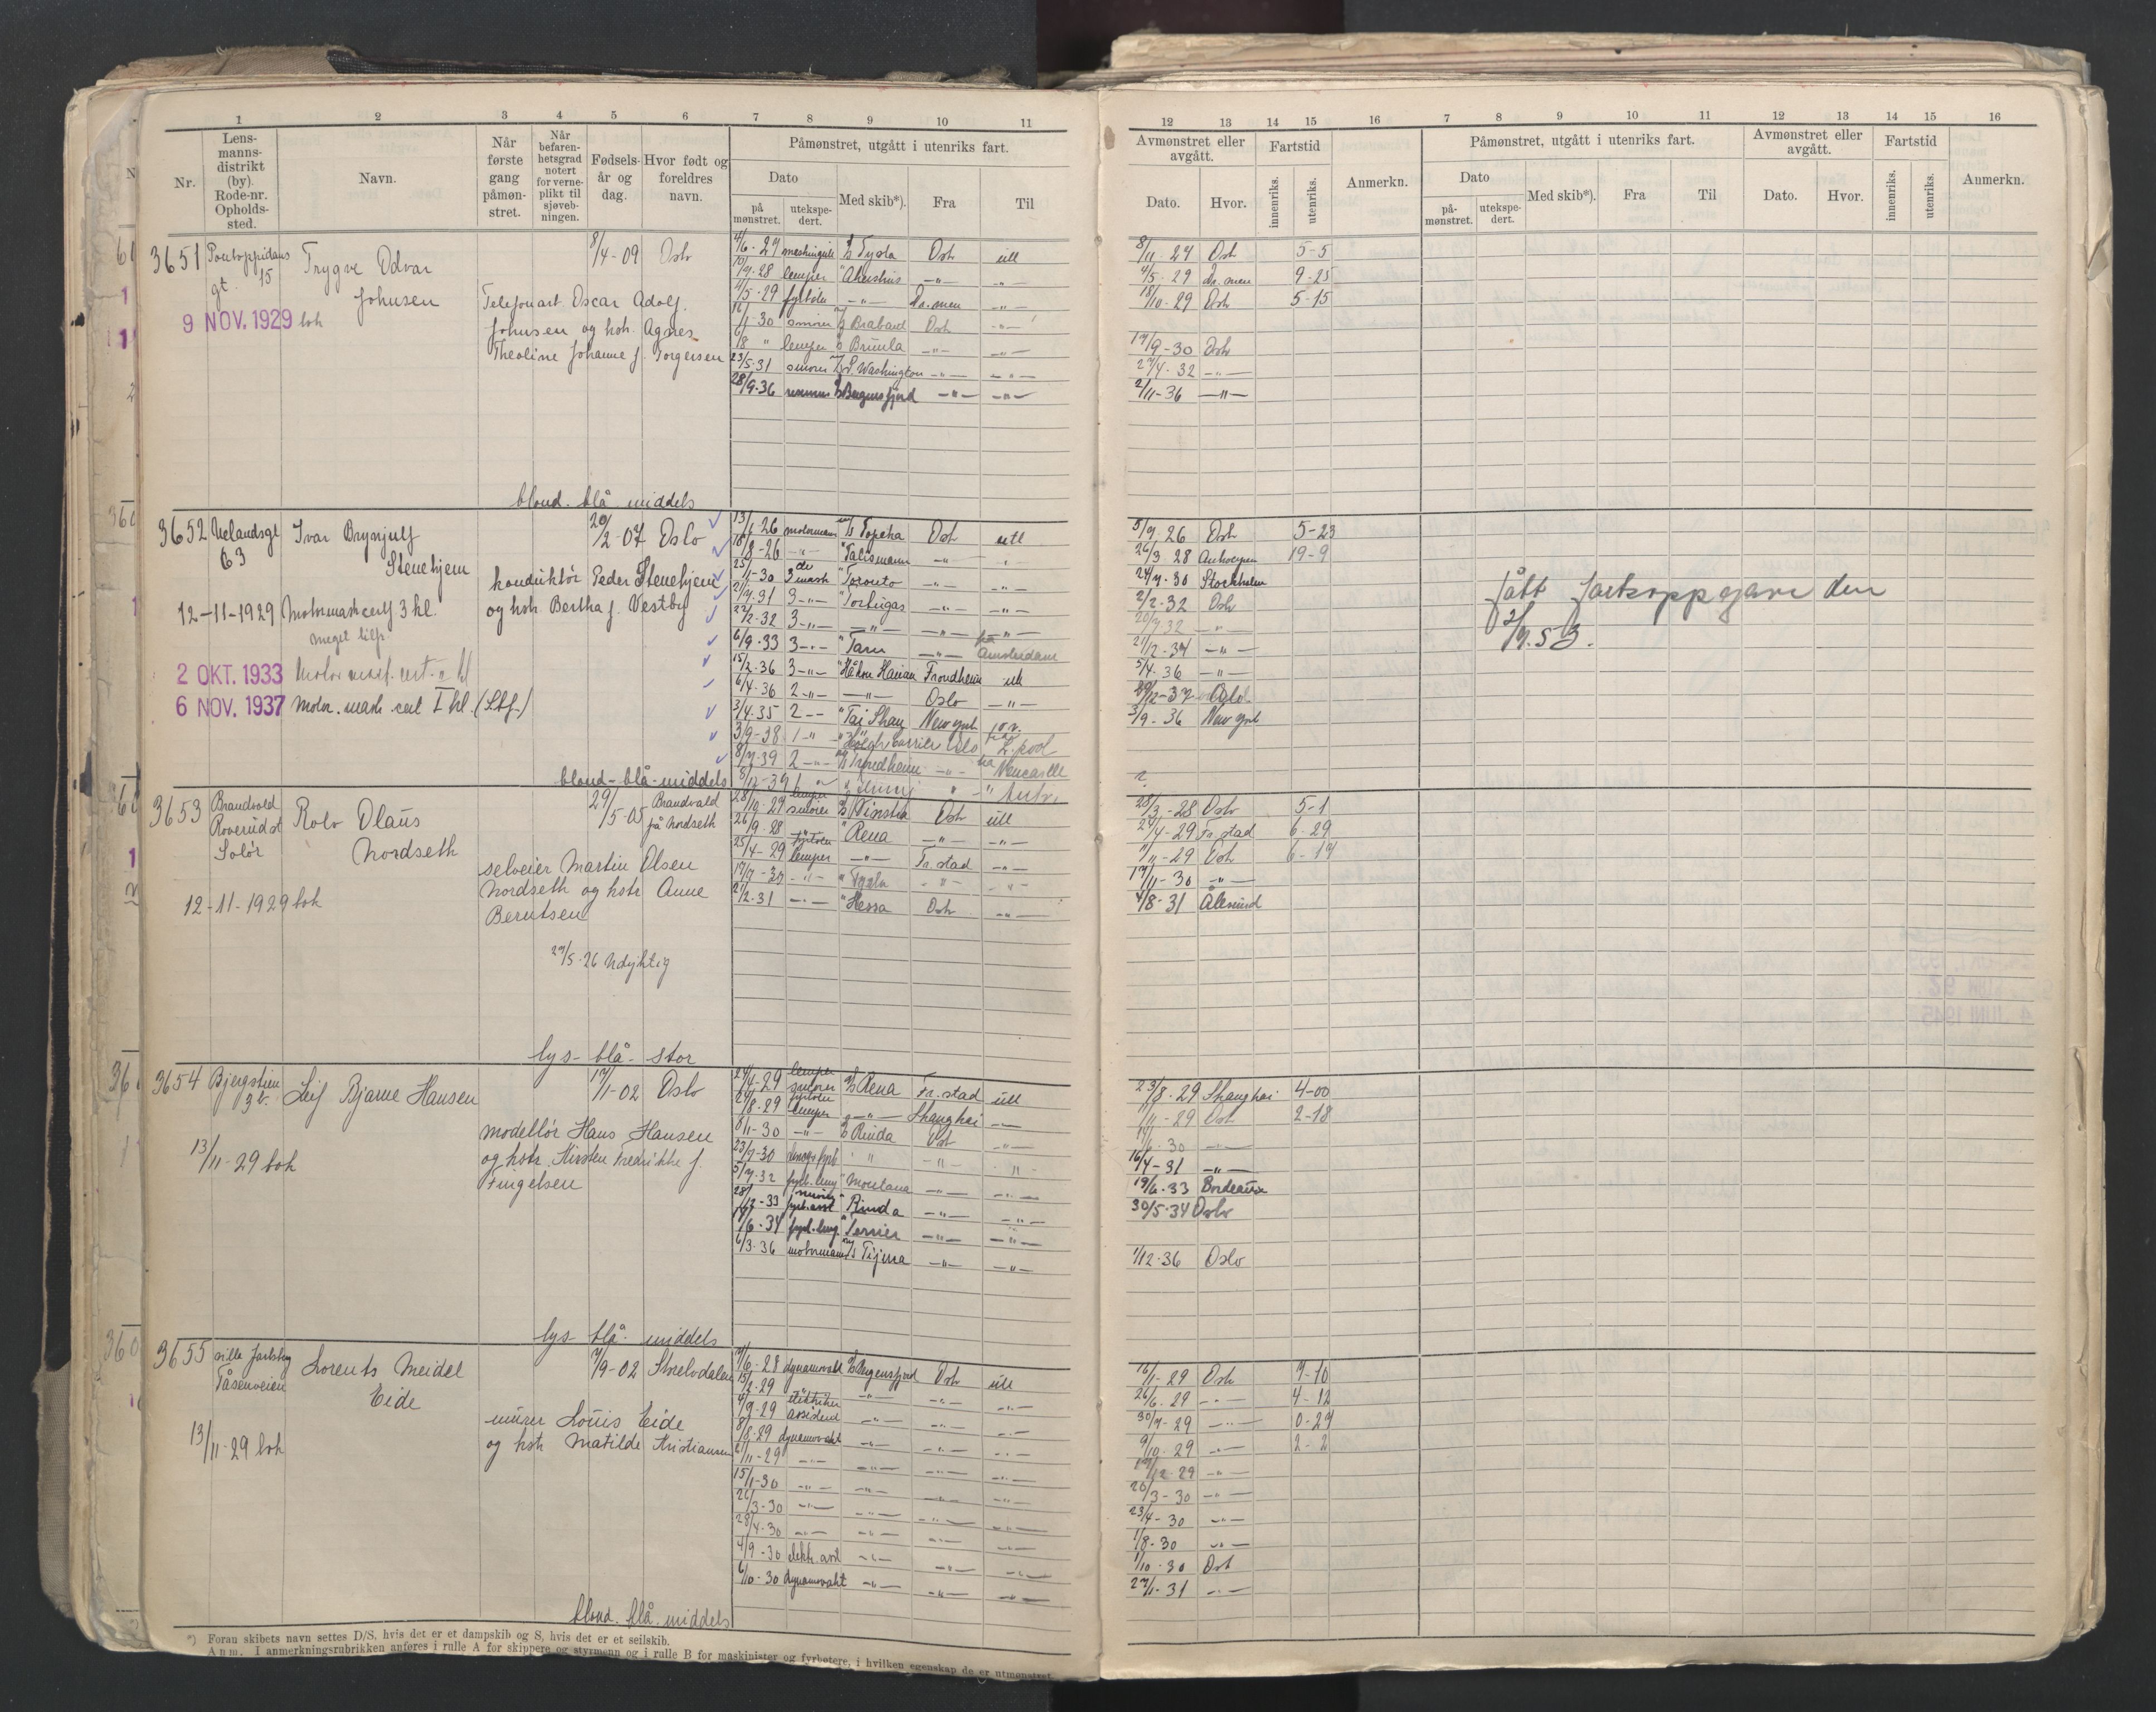 1 2 3 4 5 6 7 8 9 10 11
Nr.
Lens-
manns-
distrikt
(by).
Rode-nr.
Opholds-
sted.
Navn.
Når
første
gang
påmøn-
stret.
Når
befaren-
hetsgrad
notert
for verne-
plikt til
sjøveb-
ningen.
Fødsels-
år og
dag.
Hvor født og
foreldres
navn.
Påmønstret, utgått i utenriks fart.
Dato
på
mønstret.
utekspe-
dert.
Med skib*).
Fra
Til
3651 Pontoppidans
gt. 15
Trygve Odvar
Johnsen
8/4-09 Oslo
9 NOV. 1929 boh
Telefonarb. Oscar Adolf
Johnsen og hstr. Agnes
Theoline Johanne f. Torgersen
4/6-27 messingutt D/S Tysla Oslo utl
/9-28 lemper " Akershus -"- -"-
/5-29 fyrbøter -"- Dr.men -"-
/1-30 smører M/S Brabant Oslo -"-
6/8 " lemper D/S Brumla -"- -"-
23/5-31 smører M/S G. Washington -"- -"-
28/9-36 D/S Bergensfjord -"- -"-
blond. blå middels
3652 Uelandsgt
63
Ivar Brynjulf
Stenehjem
20/2-07 Oslo
konduktør Peder Stenehjem
og hstr. Bertha f. Vestby
12-11-1929 Motormaskcert 3 kl.
meget tilfr
2 OKT. 1933
6 NOV. 1937 Motor. mask. cert I kl. (Stf.)
13/1-26 motormann M/S Topeka Oslo utl
18/8-26 -"- " Talisman -"- -"-
25/1-30 3 mask " Toronto -"- -"-
2/9-31 3-"- " Tortugas -"- -"-
22/2-32 3-"- -"- -"- -"-
6/9-33 3-"- " Tarn -"- fra Amsterdam
15/2-36 3-"- " Håkon Hauan Trondheim utl
6/4-36 2-"- -"- Oslo -"-
3/4-35 2-"- " Tai Shan New York
3/9-38 1 " " Høegh Carrier Oslo fra L.pool
8/7-39 2-"- M/S Trondheim -"- fra Newcastle
8/12-39 1 " " Antw.
blond-blå-middels
3653 Brandvald
Roverud st
Solør
Rolv Olaus
Nordseth
29/5-05 Brandvald
på Nordseth
selveier Martin Olsen
Nordseth og hstr Anne
Berntsen
12-11-1929 boh
27/5-26 Udyktig
28/10-27 lemper smører D/S Oslo utl
26/9-28 " Rena -"- -"-
25/4-29 fyrbøter lemper -"- Fr.stad -"-
17/9-30 -"- " Tysla -"- -"-
2/2-31 -"- " Hessa Oslo -"-
lys- blå- stor
3654 Bjergstien
3b.
Leif Bjarne Hansen
17/1-02 Oslo
modellør Hans Hansen
og hstr. Kirsten Fredrikke f.
Tingelsen
13/11-29 boh
24/4-29 lemper smører D/S Rena Fr.stad utl
24/8-29 fyrbøter lemper -"- Shanghai -"-
8/1-30 -"- D/S Rinda Oslo -"-
23/7-30 " " -"- -"-
5/7-32 fyrb. lemp " Montana -"- -"-
28/12-33 fyrb. asst " Rinda -"- -"-
/6-34 fyrb. lemp. " Terrier -"- -"-
6/3-36 motormann M/S Tijuca -"- -"-
lys- blå- middels
3655 villa Jarlsberg
Tåsenveien
Lorents Meidel
Eide
7/9-02 Strelvdalen
murer Louis Eide
og hstr Matilde Kristiansen
13/11-29 boh
/6-28 dynamovakt D/S Bergensfjord Oslo utl
15/2-29 -"- -"- -"- -"-
4/7-29 elektriker assistent -"- -"- -"-
8/8-29 dynamovakt -"- -"- -"-
6/11-29 -"- -"- -"- -"-
15/1-30 -"- -"- -"- -"-
26/3-30 -"- -"- -"- -"-
28/4-30 -"- -"- -"- -"-
4/9-30 elektr. asst -"- -"- -"-
6/10-30 dynamovakt -"- -"- -"-
blond. blå. middels
*) Foran skibets navn settes D/S, hvis det er et dampskib og S, hvis det er et seilskib.
Anm. I anmerkningsrubrikken anføres i rulle A for skippere og styrmenn og i rulle B for maskinister og fyrbøtere, i hvilken egenskap de er utmønstret.
12 13 14 15 16 7 8 9 10 11 12 13 14 15 16
Avmønstret eller
avgått.
Dato. Hvor.
Fartstid
innenriks.
utenriks.
Anmerkn.
Påmønstret, utgått i utenriks fart.
Dato
på-
mønstret.
utekspe-
dert.
Med skib*).
Fra
Til
Avmønstret eller
avgått.
Dato. Hvor.
Fartstid
innenriks.
utenriks.
Anmerkn.
8/11-27 Oslo 5-5
4/5-29 Dr.men 9-25
18/10-29 Oslo 5-15
17/9-30 Oslo
27/4-32 -"-
2/11-36 -"-
5/7-26 Oslo 5-23
26/3-28 Antwerpen 19-9
24/7-30 Stockholm
2/2-32 Oslo
20/7-32 -"-
21/12-34 -"-
5/4-36 -"-
20/12-37 Oslo
3/9-36 New York
?
fått fartsoppgave den
2/9.53.
28/3-28 Oslo 5-1
24/4-29 Fr.stad 6-29
11/11-29 Oslo 6-17
17/11-30 -"-
4/8-31 Ålesund
23/8-29 Shanghai 4-00
11/11-29 Oslo 2-18
/6-30 -"-
16/4-31 -"-
19/6-33 Bordeaux
30/5-34 Oslo
1/12-36 Oslo
16/1-29 Oslo 7-10
26/6-29 -"- 4-12
30/7-29 -"- 0-27
9/10-29 -"- 2-2
19/12-29 -"-
20/3-30 -"-
23/4-30 -"-
1/8-30 -"-
1/10-30 Oslo
27/1-31 -"-